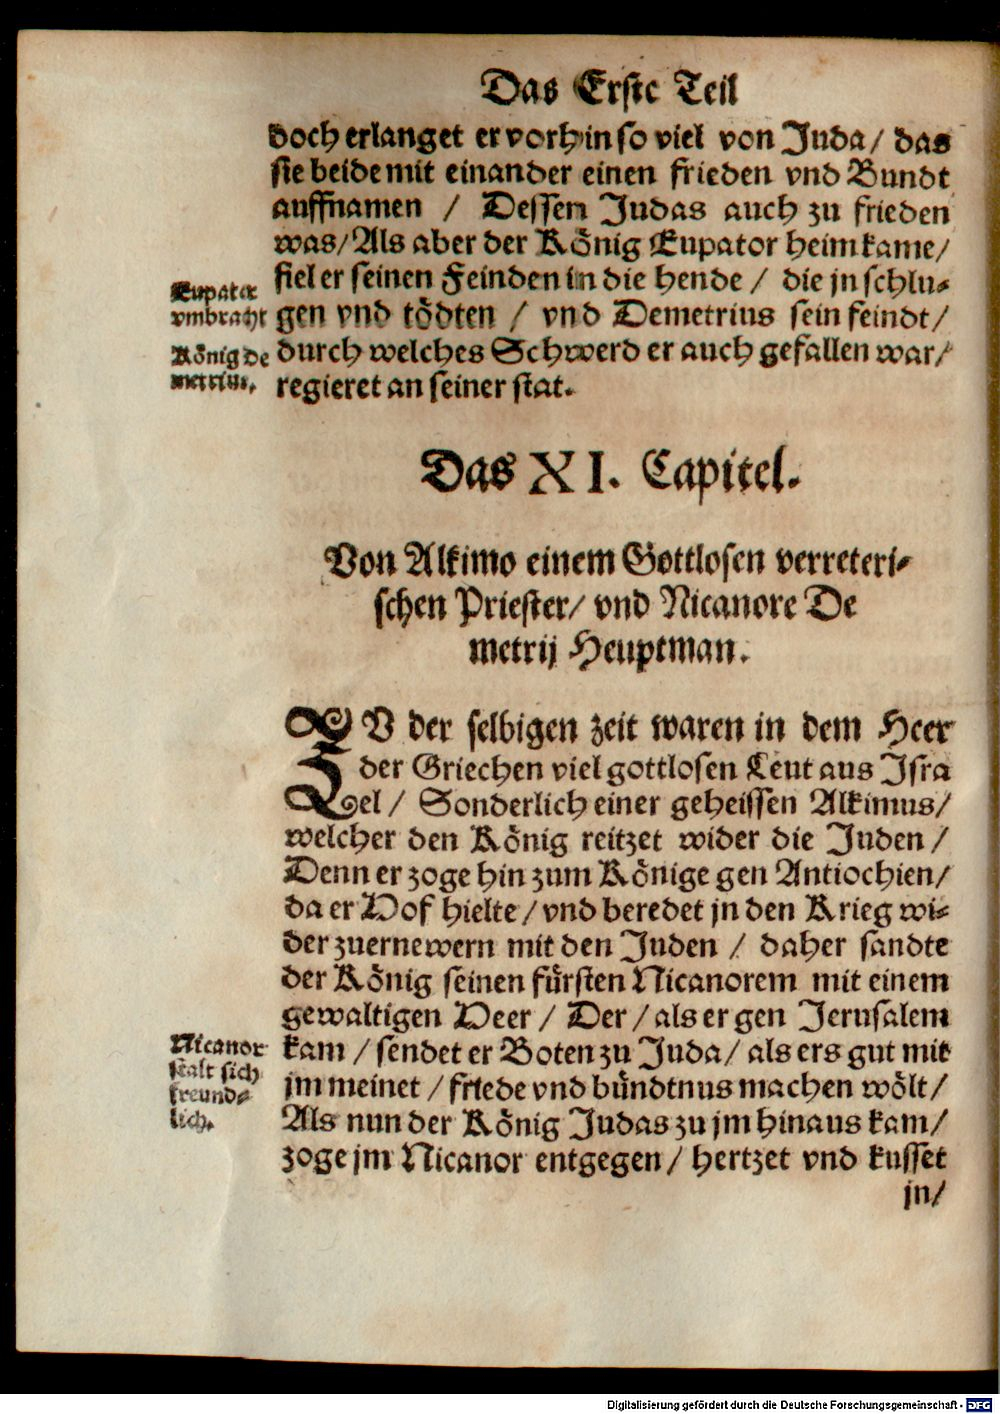 Das Erste Teil
doch erlanget er vorhin so viel von Juda / das
sie beide mit einander einen frieden vnd Bundt
auffnamen / Dessen Judas auch zu frieden
was/ Als aber der König Eupator heim kame/
fiel er seinen Feinden in die hende / die jn schlu-
gen vnd tödten / vnd Demetrius sein feindt/
durch welches Schwerd er auch gefallen war/
regieret an seiner stat.
Eupator
vmbracht
König de
metrius.
Das XI. Capitel.
Von Alkimo einem Gottlosen verreteri-
schen Priester/ vnd Nicanore De
metrij Heuptman.
ZV der selbigen zeit waren in dem Heer
der Griechen viel gottlosen Leut aus Isra
el / Sonderlich einer geheissen Alkimus/
welcher den König reitzet wider die Juden /
Denn er zoge hin zum Könige gen Antiochien/
da er Hof hielte / vnd beredet jn den Krieg wi-
der zuernewern mit den Juden / daher sandte
der König seinen fürsten Nicanorem mit einem
gewaltigen Heer / Der / als er gen Jerusalem
kam / sendet er Boten zu Juda / als ers gut mit
jm meinet / friede vnd bündtnus machen wölt /
Als nun der König Judas zu jm hinaus kam/
zoge jm Nicanor entgegen / hertzet vnd kusset
jn/
Nicanor
stalt sich
freund-
lich.
Digitalisierung gefördert durch die Deutsche Forschungsgemeinschaft - DFG